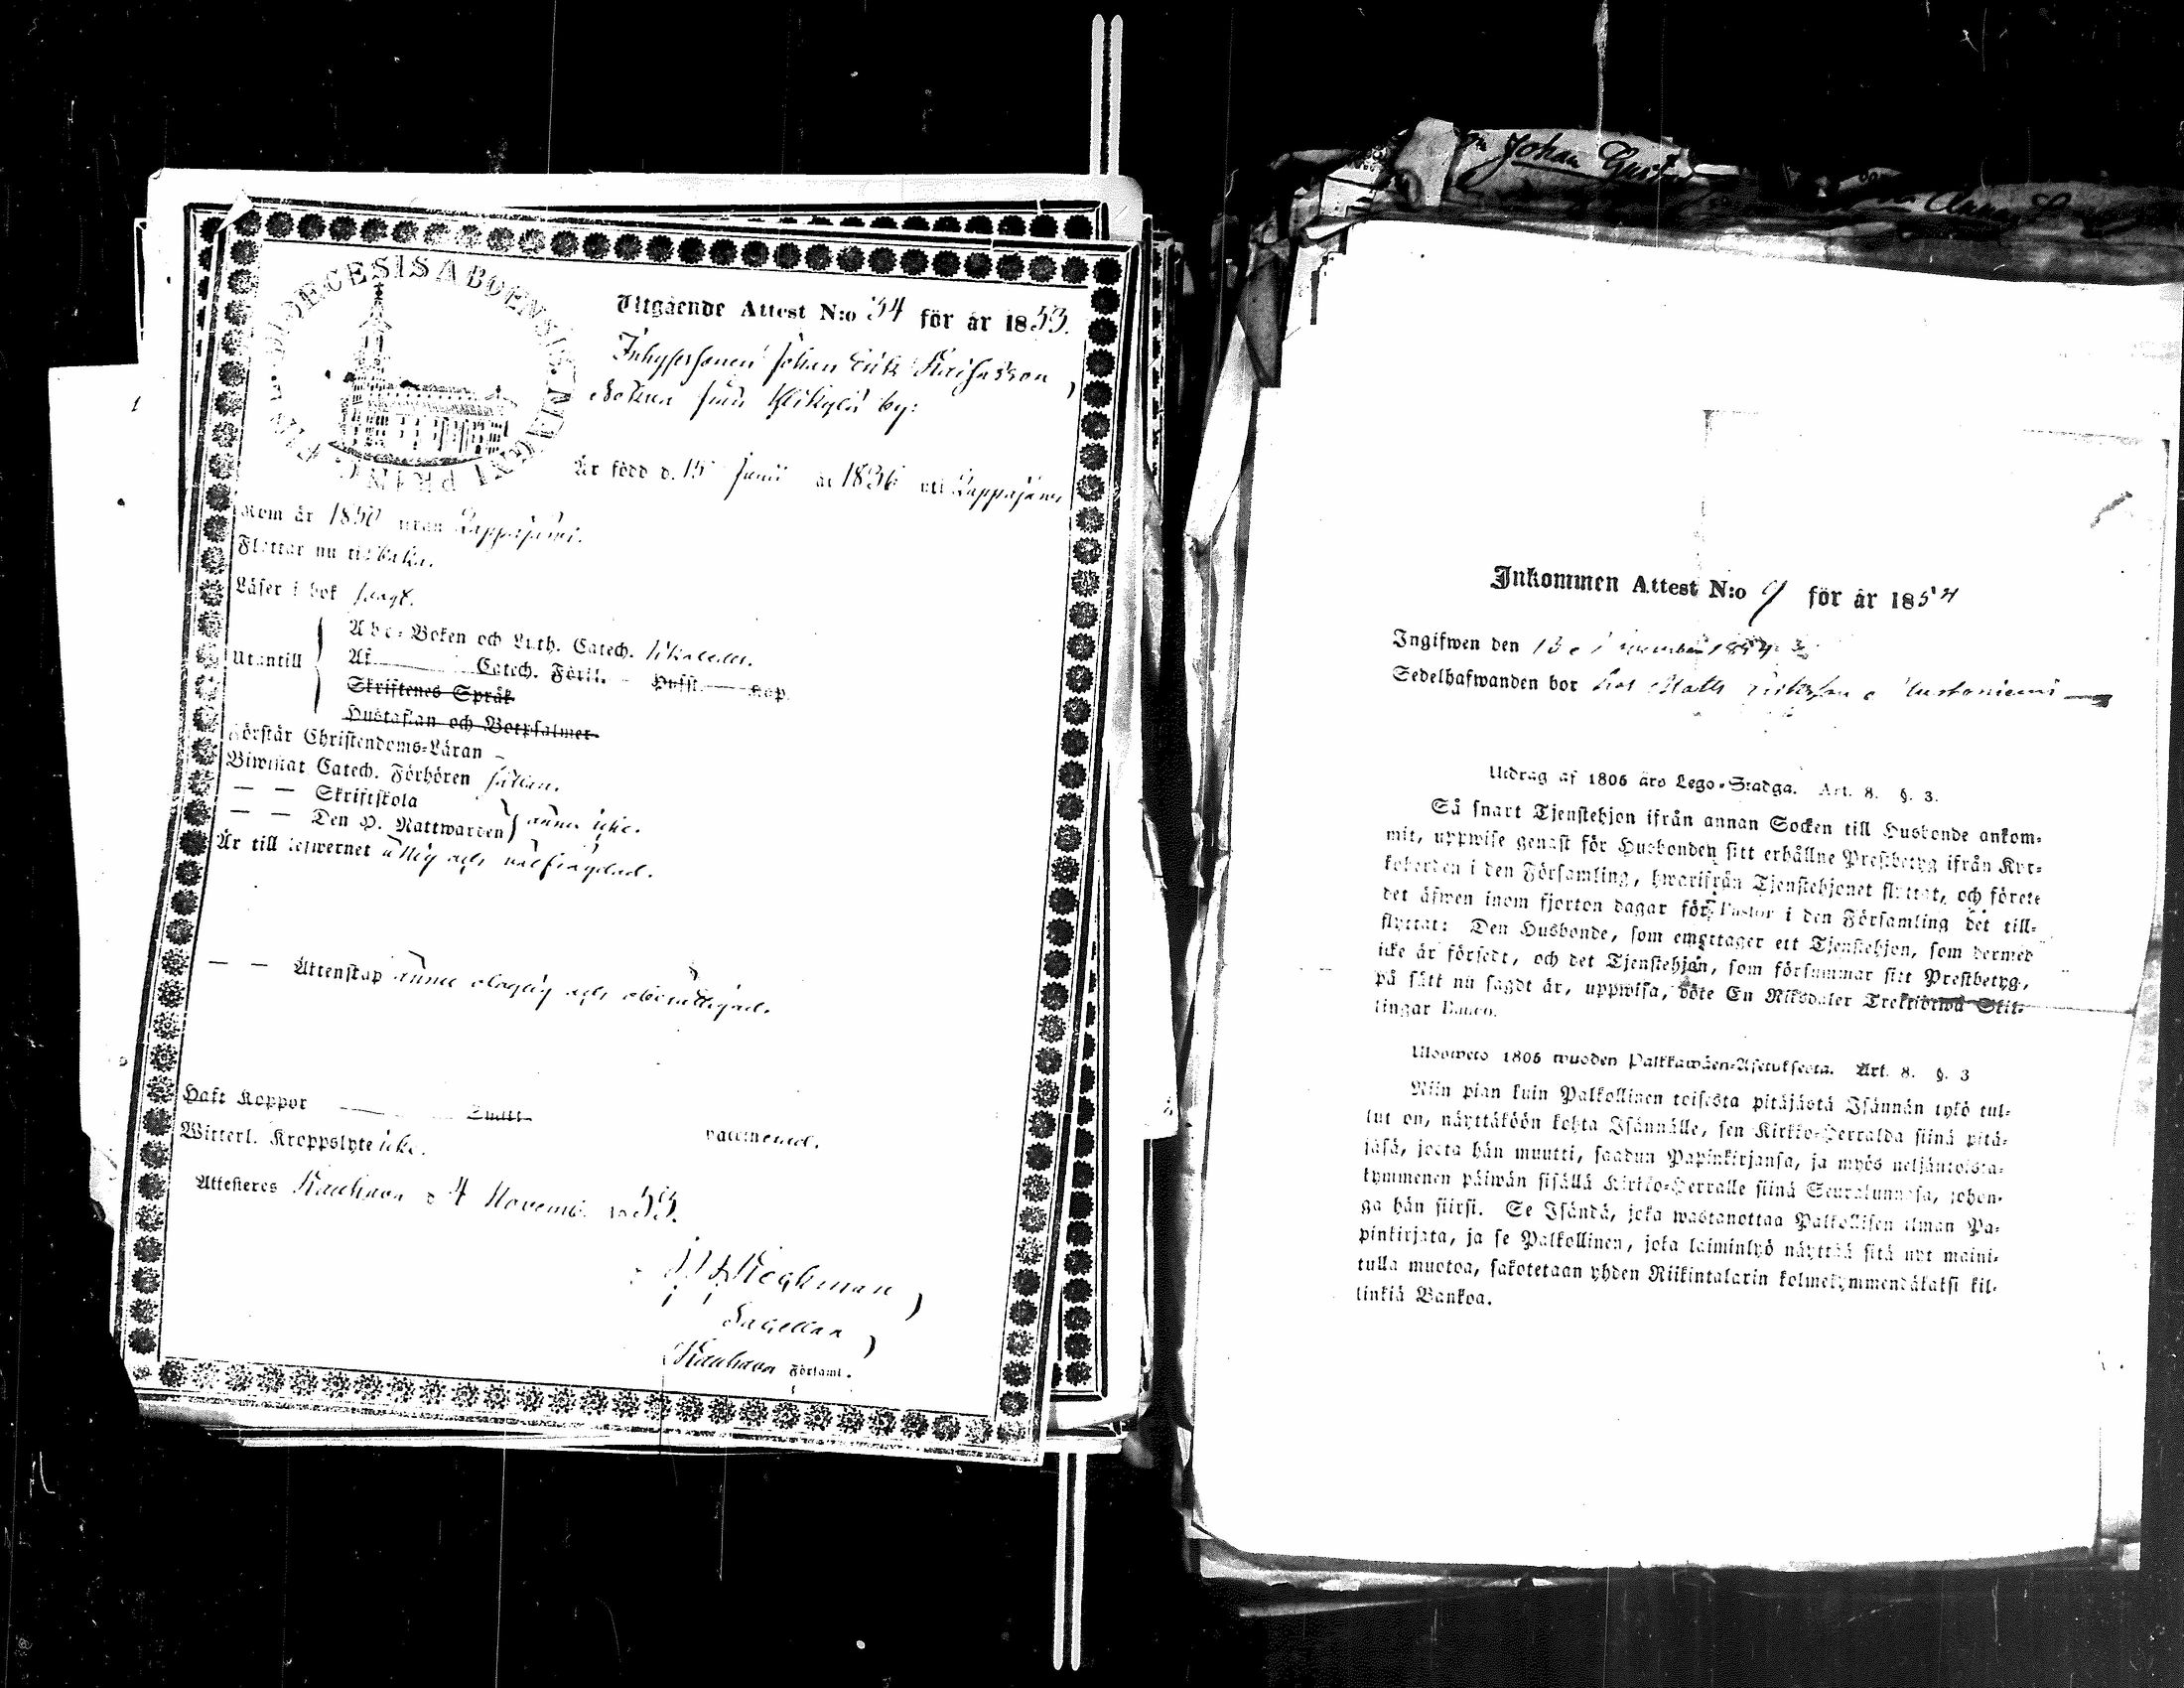 DIOECESIS ABOENSIS MAGNI PRINC. FINL.
Utgående Attest N:o 34 för år 1853.
Inhysessonen Johan Erik Kaisasson,
från by:
Är född d. 15 Junii år 1836 uti Lappajärvi
Kom år 1850 från Lappajärvi.
Flyttar nu tillbaka.
Läser i bok svagt.
Utantill
Abc-Boken och Luth. Catech. likaledes.
Af Catech. Förkl. Hufst. Kap.
Skriftenes Språk
Hustaflan och Botpsalmer
Förstår Christendoms-Läran -
Biwistat Catech. Förhören sällan.
— — Skriftskola
— — Den H. Nattwarden } ännu icke.
Är till lefwernet ärlig och välfrägdad.
— — Äktenskap ännu olaglig och oberättigad.
Haft Koppor
Witterl. Kroppslyte icke. vaccinerad.
Attesteres Kauhava d 4 Novemb. 1853.
Kauhava Församl.
Johan Gust
Anna
Inkommen Attest N:o 9 för år 1854
Ingifwen den 13 1854
Sedelhafwanden bor hos Matts
Utdrag af 1806 års Lego-Stadga. Art. 8. §. 3.
Så snart Tjenstehjon ifrån annan Socken till Husbonde ankom-
mit, uppwise genast för Husbonden sitt erhållne Prestbetyg ifrån Kyr-
koherden i den Församling, hwarifrån Tjenstehjonet flyttat, och förete
det äfwen inom fjorton dagar för Pastor i den Församling det till-
flyttat: Den Husbonde, som emottager ett Tjenstehjon, som dermed
icke är försedt, och det Tjenstehjon, som försummar sitt Prestbetyg,
på sätt nu sagdt är, uppwisa, böte En Riksdaler Trettiotwå Skil-
lingar Banco.
Ulosweto 1806 wuoden Palkkawäen-Asetuksesta. Art. 8. §. 3
Niin pian kuin Palkollinen toisesta pitäjästä Isännän tykö tul-
lut on, näyttäköön kohta Isännälle, sen Kirkko-Herralda siinä pitä-
jäsä, josta hän muutti, saadun Papinkirjansa, ja myös neljäntoista-
kymmenen päiwän sisällä Kirkko-Herralle siinä Seurakunnasa, johon-
ga hän siirsi. Se Isändä, joka wastanottaa Palkollisen ilman Pa-
pinkirjata, ja se Palkollinen, joka laiminlyö näyttää sitä nyt maini-
tulla muotoa, sakotetaan yhden Riikintalarin kolmekymmendäkaksi kil-
linkiä Bankoa.